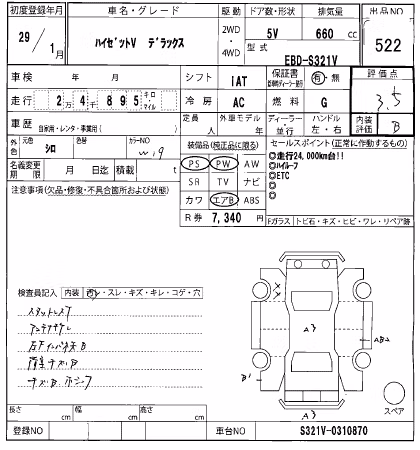 初度登録年月 車名・グレード 駆動 ドア数・形状 排気量 出品NO
29/1月 ハイゼットV デラックス 2WD・4WD 5V 660 cc 522
型式 EBD-S321V
車検 年 月 シフト IAT 保証書 有・無 評価点
走行 2万4千895 キロ マイル 冷房 AC 燃料 G 3.5
車歴 自家用・レンタ・事業用( ) 定員 人 外車モデル 年 ディーラー・並行 ハンドル 左・右 内装評価 B
外色 元色 シロ 色替 カラーNO W19
装備品(純正品に限る) セールスポイント(正常に作動するもの)
名義変更期限 月 日迄 積載 t
PS PW AW
SR TV ナビ
カワ エアB ABS
◎走行24,000km台!!
◎ハイルーフ
◎ETC
◎
注意事項(欠品・修復・不具合箇所および状態)
R券 7,340 円
Fガラス トビ石・キズ・ヒビ・ワレ・リペア跡
検査員記入 内装 ・スレ・キズ・キレ・コゲ・穴
スタットレスT
アンテナナシ
A3
AB2
B1
A3
スペア
長さ cm 幅 cm 高さ cm
登録NO 車台NO S321V-0310870